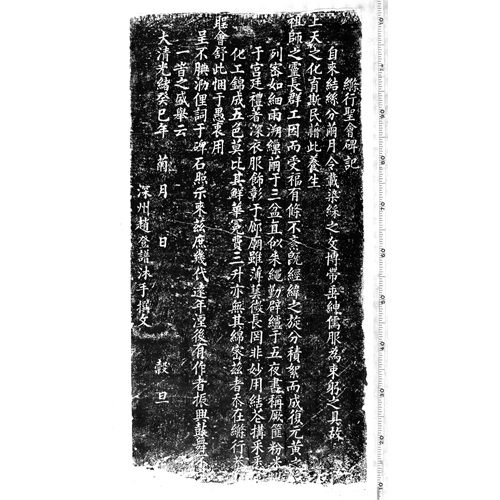 縧行聖會碑記
自來結絲分繭月令載染綵之文博帶垂紳儒服為束躬之具故
上天之化育斯民藉此養生
祖師之靈長群工因而受福有條不紊既經緯之旋分積絮而成復元黄
列密如細雨溯繅繭于三盆直似朱繩勤辟纑于五夜書稱厥篚粉米
于宫廷禮著深衣服飾彰于廊廟雖薄莫微長罔非妙用結茶搆采
化工錦成五色莫比其鮮華冕費三升亦無其綿密茲者忝在縧行
聖會紓此悃于愚衷用
呈不腆泐俚詞于碑石照示來茲庶幾代遠年湮後有作者振興鼓舞
一昔之盛舉云
大清光緒癸巳年 菊月 日 穀旦
深州趙登譜沐手撰文